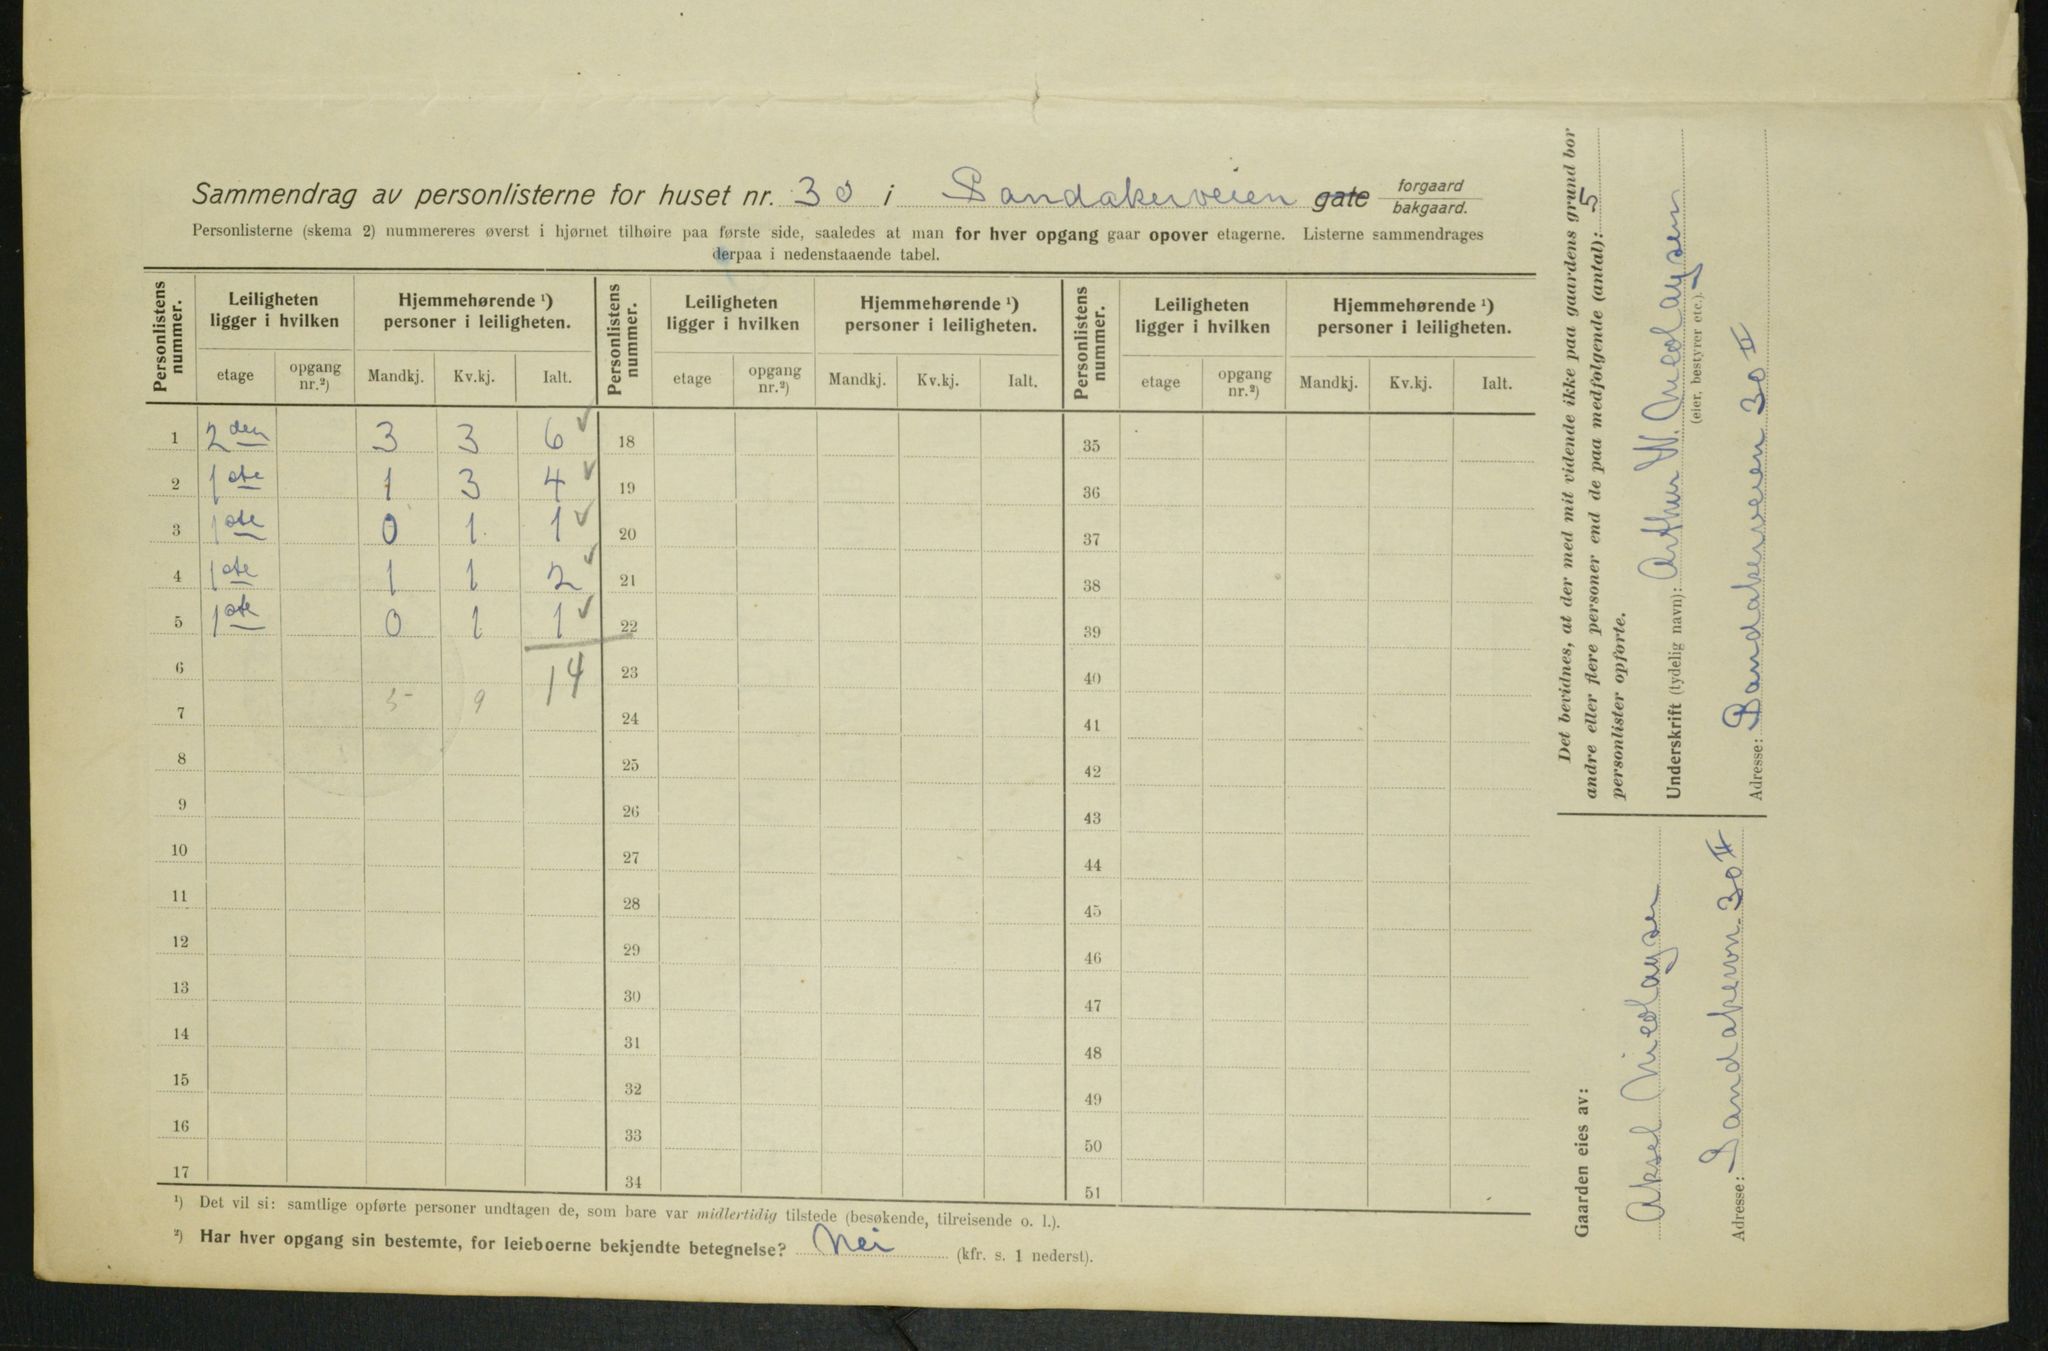 Sammendrag av personlisterne for huset nr. 30 i Sandakerveien gate forgaard bakgaard.
Personlisterne (skema 2) nummereres øverst i hjørnet tilhøire paa første side, saaledes at man for hver opgang gaar opover etagerne. Listerne sammendrages
derpaa i nedenstaaende tabel.
Personlistens nummer. Leiligheten ligger i hvilken Hjemmehørende ¹) personer i leiligheten. Personlistens nummer. Leiligheten ligger i hvilken Hjemmehørende ¹) personer i leiligheten. Personlistens nummer. Leiligheten ligger i hvilken Hjemmehørende ¹) personer i leiligheten.
etage opgang nr.²) Mandkj. Kv.kj. Ialt. etage opgang nr.²) Mandkj. Kv.kj. Ialt. etage opgang nr.²) Mandkj. Kv.kj. Ialt.
1 2den 3 3 6 ✓ 18 35
2 1ste 1 3 4 ✓ 19 36
3 1ste 0 1 1 ✓ 20 37
4 1ste 1 1 2 ✓ 21 38
5 1ste 0 1 1 ✓ 22 39
6 14 23 40
7 5 9 24 41
8 25 42
9 26 43
10 27 44
11 28 45
12 29 46
13 30 47
14 31 48
15 32 49
16 33 50
17 34 51
¹) Det vil si: samtlige opførte personer undtagen de, som bare var midlertidig tilstede (besøkende, tilreisende o. l.).
²) Har hver opgang sin bestemte, for leieboerne bekjendte betegnelse? Nei (kfr. s. 1 nederst).
Det bevidnes, at der med mit vidende ikke paa gaardens grund bor
andre eller flere personer end de paa medfølgende (antal): 5
personlister opførte.
Underskrift (tydelig navn): Arthur W. Nicolaysen
(eier, bestyrer etc.).
Adresse: Sandakerveien 30 II
Gaarden eies av:
Aksel Nicolaysen
Adresse: Sandakervn. 30 II